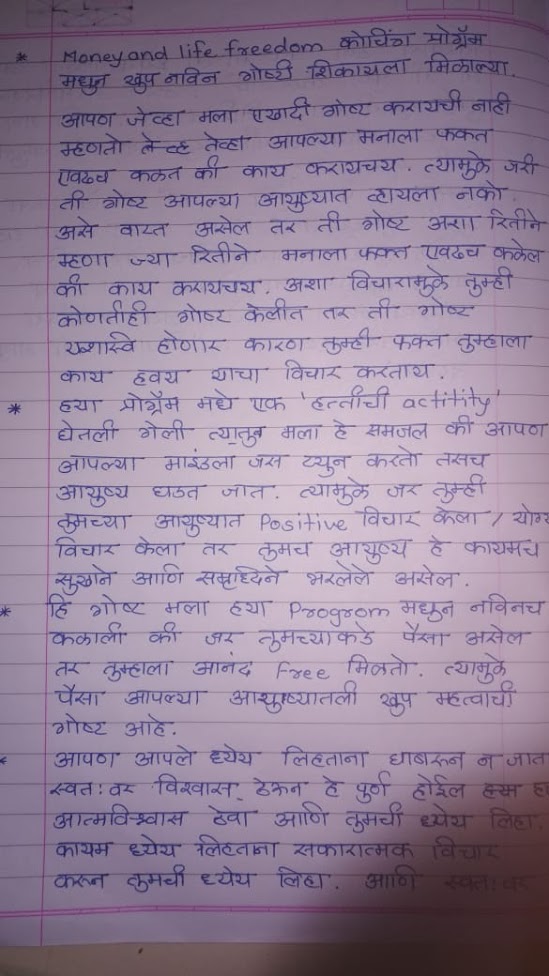 * Money and life freedom कोचिंग प्रोग्रॅम
मधुन खुप नविन गोष्टी शिकायला मिळाल्या.
आपण जेव्हा मला एखादी गोष्ट करायची नाही
म्हणतो तेव्हा आपल्या मनाला फक्त
एवढच कळत की काय करायचय. त्यामुळे जरी
ती गोष्ट आपल्या आयुष्यात व्हायला नको.
असे वाटत असेल तर ती गोष्ट अशा रितीने
म्हणा ज्या रितीने मनाला फक्त एवढच कळेल
की काय करायचय. अशा विचारामुळे तुम्ही
कोणतीही गोष्ट केलीत तर ती गोष्ट
यशस्वि होणार कारण तुम्ही फक्त तुम्हाला
काय हवय याचा विचार करताय.
* ह्या प्रोग्रॅम मधे एक 'हत्तीची actitity'
घेतली गेली त्यातुन मला हे समजल की आपण
आपल्या माइंडला जस ट्युन करतो तसच
आयुष्य घडत जात. त्यामुळे जर तुम्ही
तुमच्या आयुष्यात Positive विचार केला /
विचार केला तर तुमच आयुष्य हे कायमच
सुखाने आणि समृध्दिने भरलेले असेल.
* हि गोष्ट मला ह्या Program मधुन नविनच
कळाली की जर तुमच्याकडे पैसा असेल
तर तुम्हाला आनंद Free मिळतो. त्यामुळे
पैसा आपल्या आयुष्यातली खुप महत्वाची
गोष्ट आहे.
* आपण आपले ध्येय लिहताना घाबरुन न जाता
स्वतः वर विश्वास ठेऊन हे पुर्ण होईल
आत्मविश्वास ठेवा आणि तुमची ध्येय लिहा.
कायम ध्येय लिहताना सकारात्मक विचार
करून तुमची ध्येय लिहा. आणि स्वतः वर